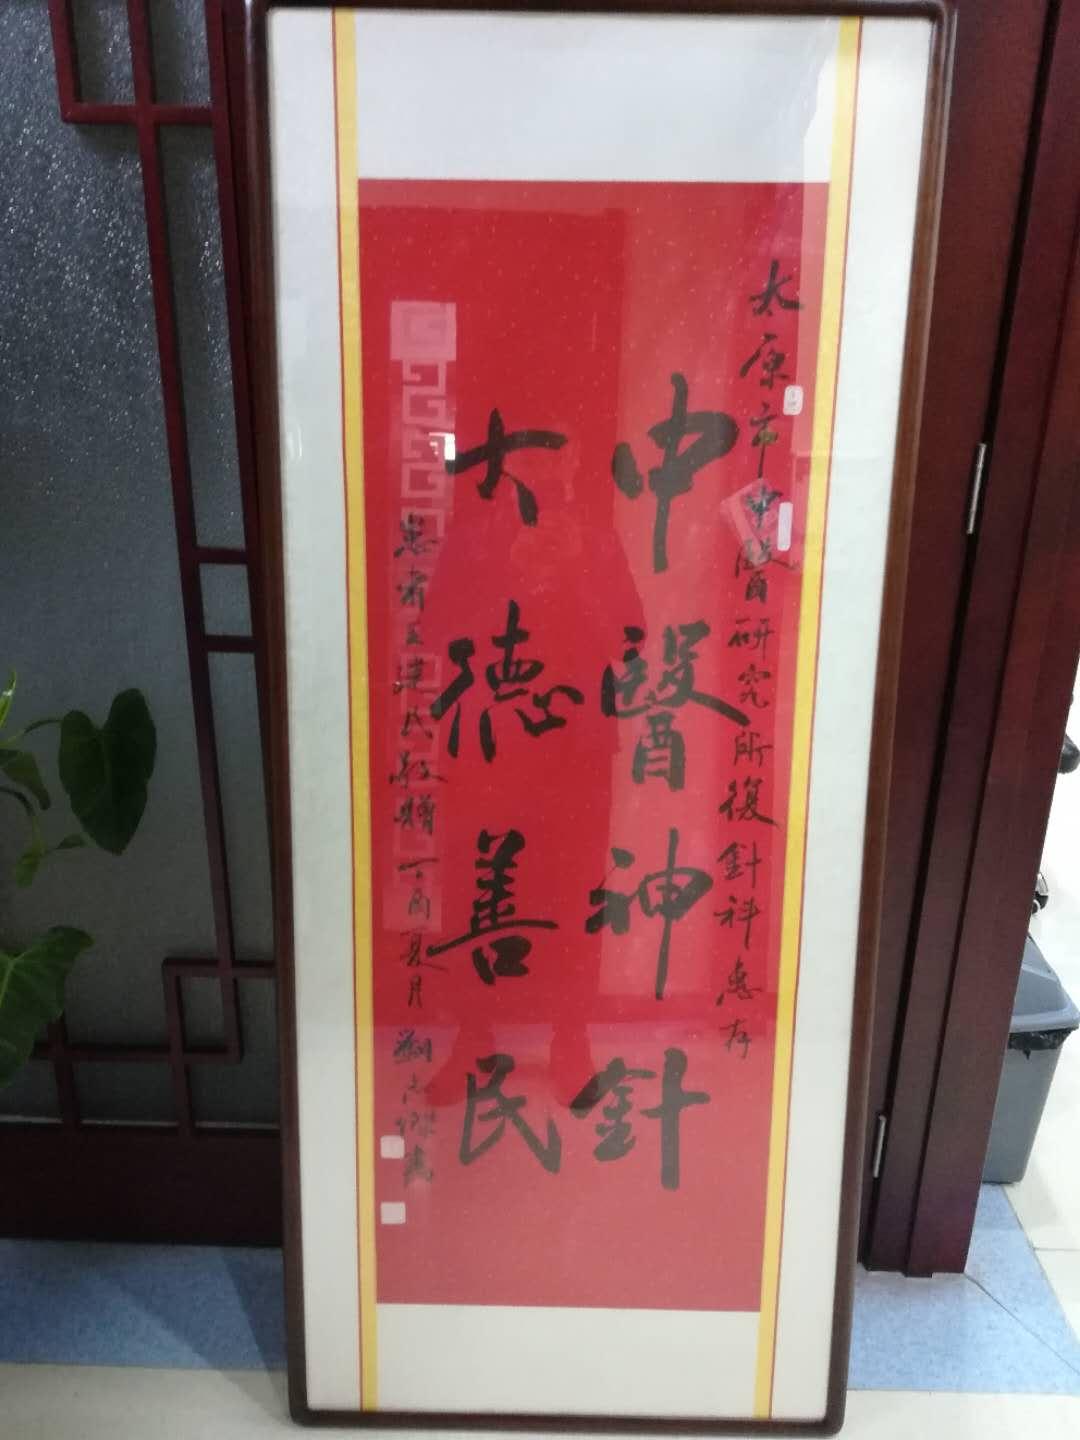 太原市中醫研究所復針科惠存
中醫神針
大德善民
患者王洪民敬贈 丁酉夏月